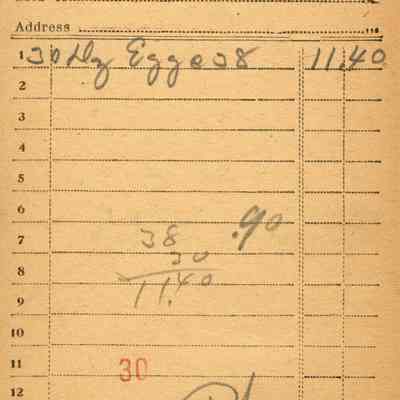 Address
1 30 Dz Eggs @ 38 11.40
2
3
4
5
6
.90
7 38
30
8
11.40
9
10
11 30
12